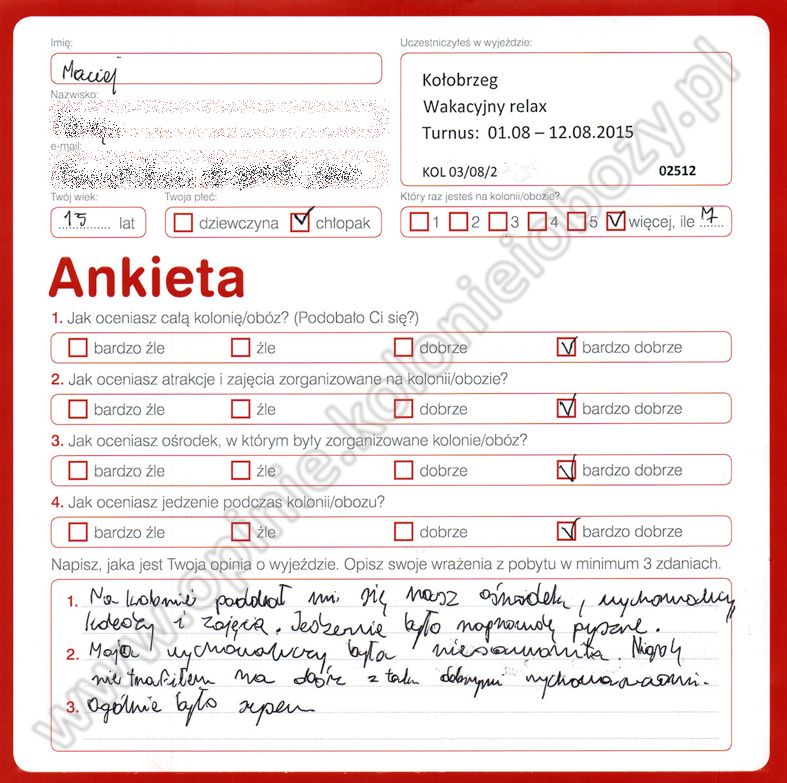 Imię:
Maciej
Nazwisko:
e-mail:
Twój wiek:
15 lat
Twoja płeć:
dziewczyna chłopak
Uczestniczyłeś w wyjeździe:
Kołobrzeg
Wakacyjny relax
Turnus: 01.08 – 12.08.2015
KOL 03/08/2 02512
Który raz jesteś na kolonii/obozie?
1 2 3 4 5 więcej, ile
Ankieta
1. Jak oceniasz całą kolonię/obóz? (Podobało Ci się?)
bardzo źle źle dobrze bardzo dobrze
2. Jak oceniasz atrakcje i zajęcia zorganizowane na kolonii/obozie?
bardzo źle źle dobrze bardzo dobrze
3. Jak oceniasz ośrodek, w którym były zorganizowane kolonie/obóz?
bardzo źle źle dobrze bardzo dobrze
4. Jak oceniasz jedzenie podczas kolonii/obozu?
bardzo źle źle dobrze bardzo dobrze
Napisz, jaka jest Twoja opinia o wyjeździe. Opisz swoje wrażenia z pobytu w minimum 3 zdaniach.
1. Na kolonii podobał mi się nasz ośrodek, wychowawcy,
koledzy i zajęcia. Jedzenie było naprawdę pyszne.
2. Moja wychowawczy była niesamowita. Nigdy
nie trafiłem na obóz z tak dobrymi wychowawcami.
3. Ogólnie było super
www.opinie.kolonieiobozy.pl